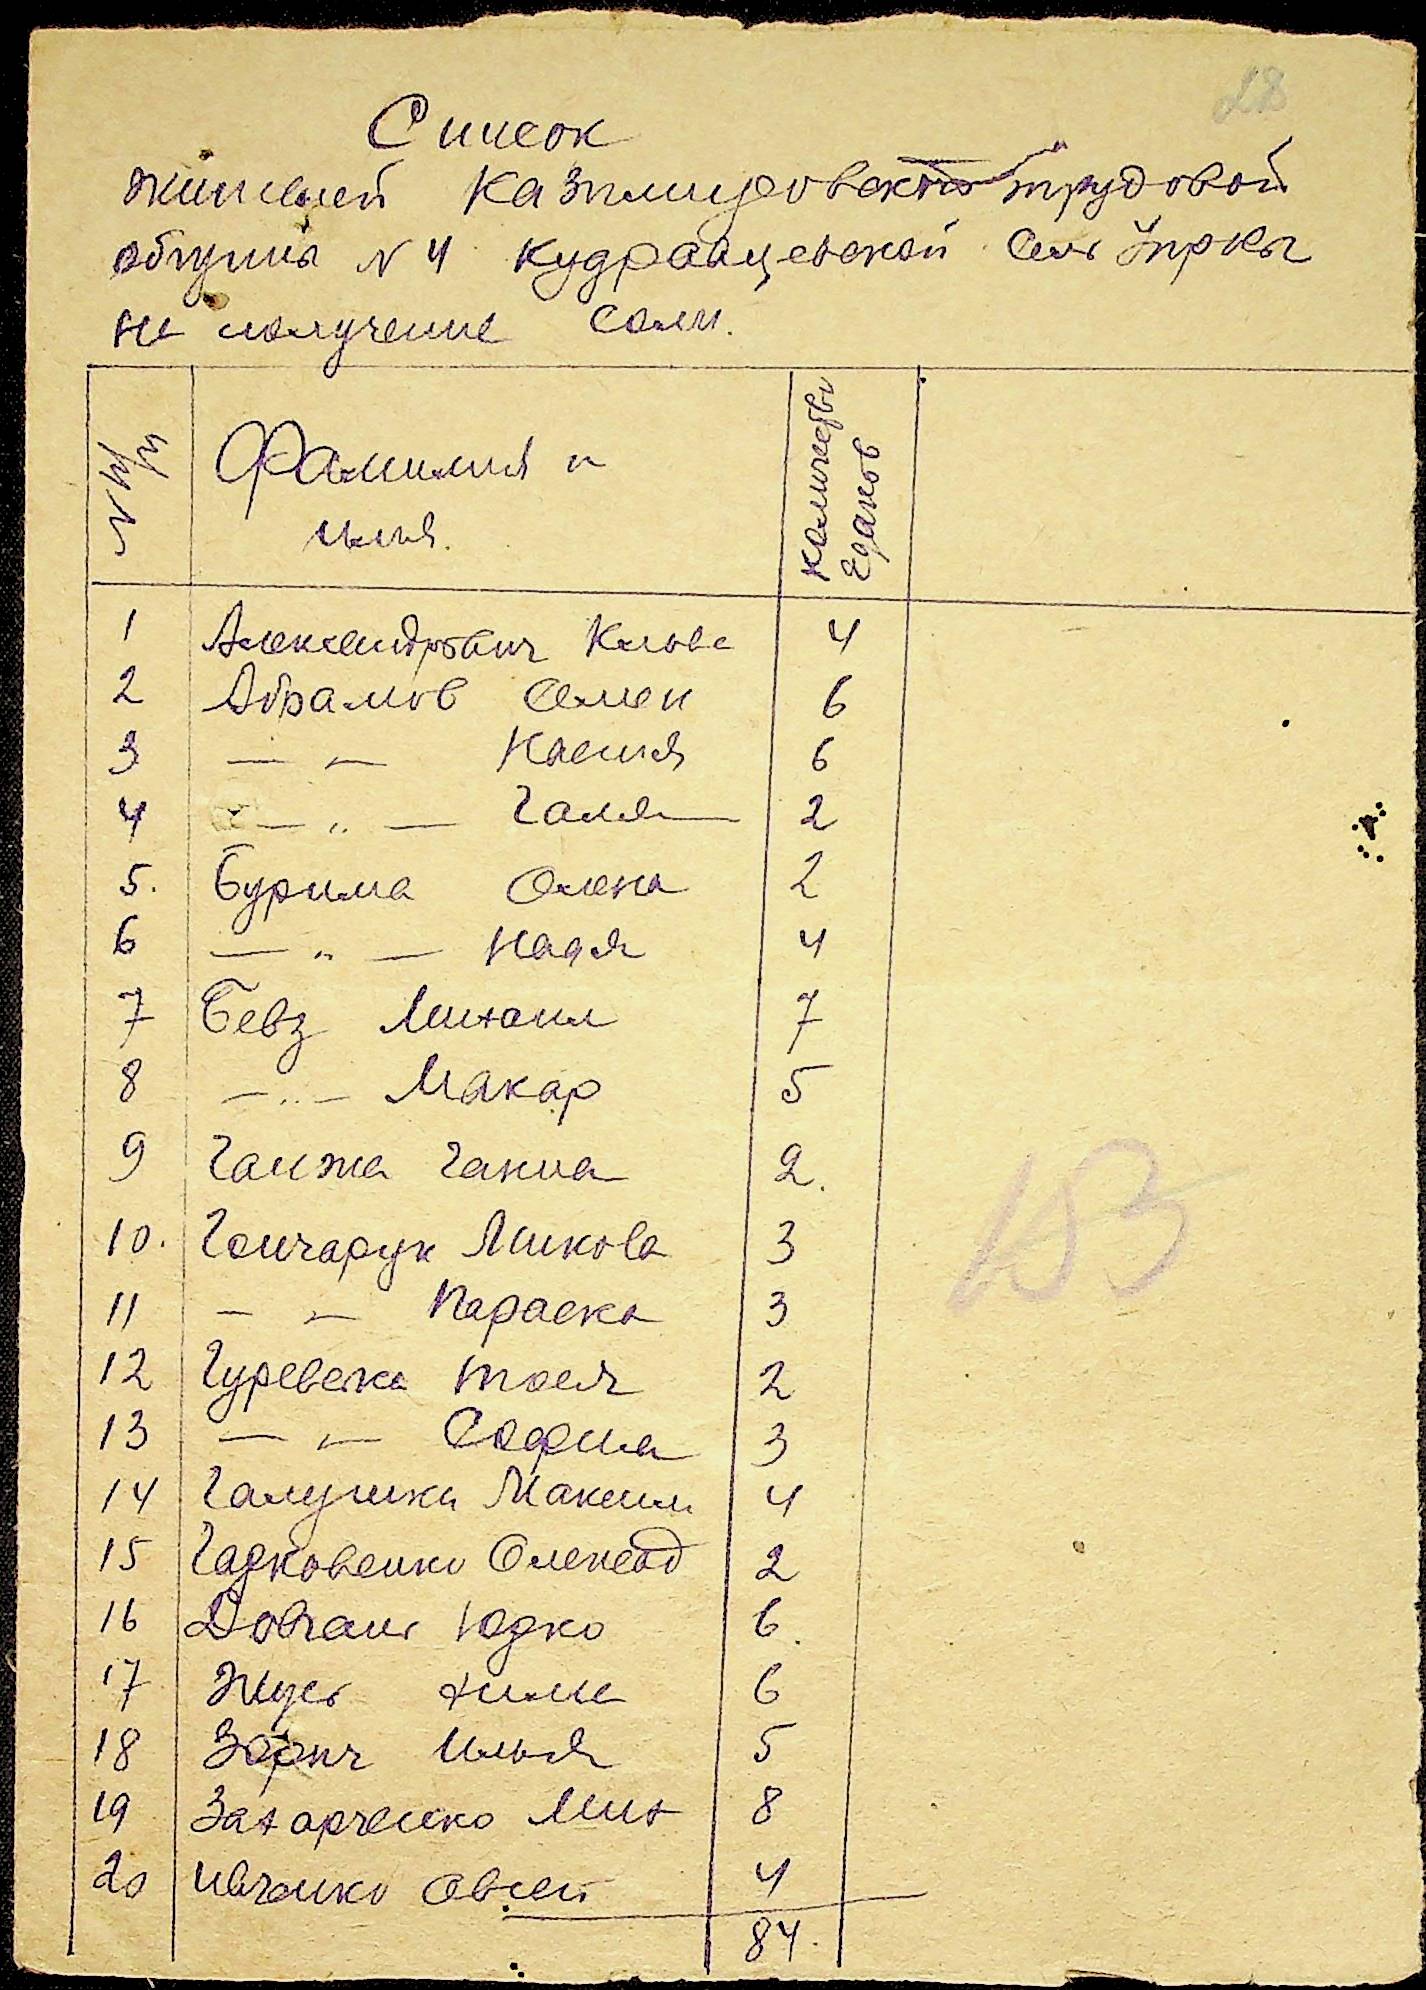 28
Список
жителей Казимировской трудовой
общины N 4 Кудравцевской Сель Упркы
на получение соли.
N п/п
Фамилия и
имя.
Количество
Едаков
1 Александрович Клава 4
2 Абрамов Семен 6
3 — „ — Настя 6
4 — „ — Галя 2
5. Бурима Олена 2
6 — „ — Надя 4
7 Бевз Михаил 7
8 — „ — Макар 5
9 Ганжа Ганна 2.
10. Гончарук Микола 3
11 — „ — Параска 3
12 Гуревска Тося 2
13 — „ — София 3
14 Галушка Максим 4
15 Гадковенко Олександ 2
16 Довгань Юдко 6.
17 Жусь Хима 6
18 Зорич Илья 5
19 Захарченко Мих 8
20 Ивченко Овсей 4
84.
153